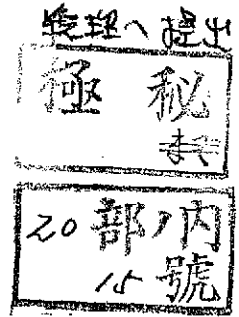 へ提出
極秘
20部ノ内
15號